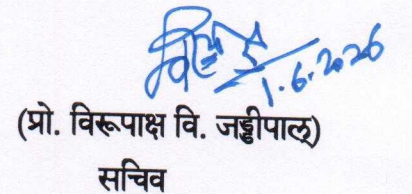 1.6.2026
(प्रो. विरूपाक्ष वि. जड्डीपाल्)
सचिव